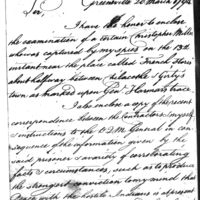 Greenville 26 March 1794
Sir,
I have the honor to enclose
the examination of a certain Christopher Miller
who was captured by my spies on the 13th
instant near the place called French Stores
about halfway between Chilacothe & Girty's
town as marked upon Genl Harmar's trace
I also enclose a copy of the present
correspondence between the Contractors, myself
& instructions to the Q. M. General in con-
sequence of the information given by the
said prisoner & a variety of corroborating
facts & circumstances, such as to produce
the strongest conviction to my mind that
Peace with the hostile Indians is at present